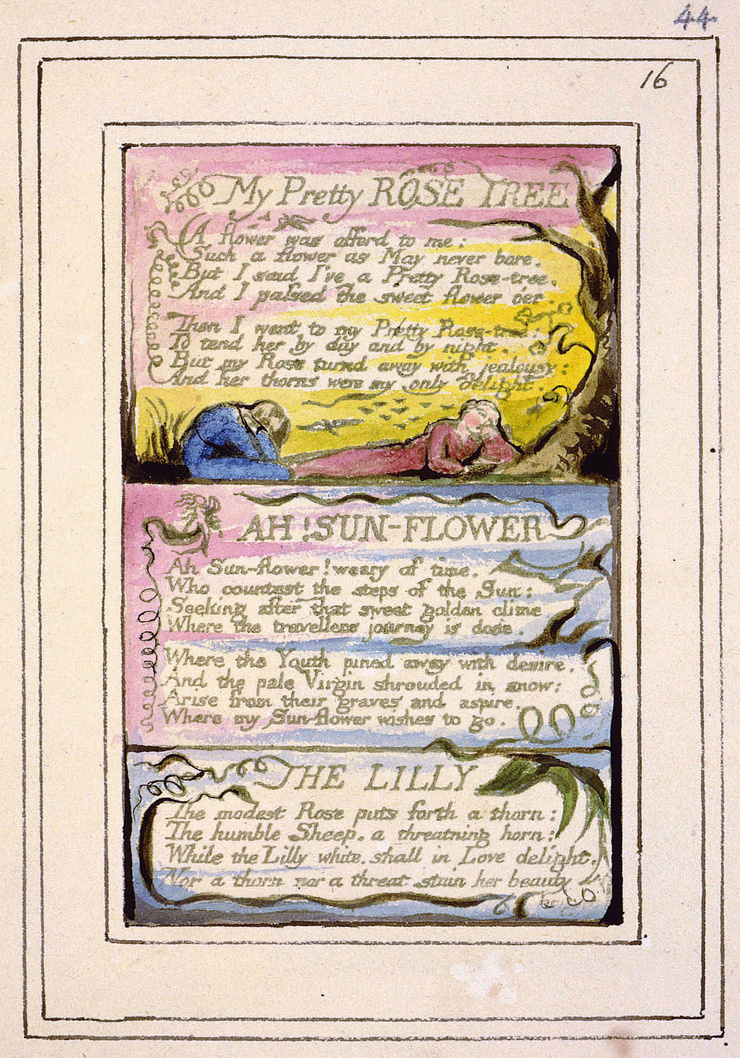 44
16
My Pretty ROSE TREE
A flower was offerd to me:
Such a flower as May never bore.
But I said I've a Pretty Rose-tree,
And I passed the sweet flower o'er.
Then I went to my Pretty Rose-tree:
To tend her by day and by night.
But my Rose turnd away with jealousy:
And her thorns were my only delight.
AH! SUN-FLOWER
Ah Sun-flower! weary of time.
Who countest the steps of the Sun:
Seeking after that sweet golden clime
Where the travellers journey is done.
Where the Youth pined away with desire,
And the pale Virgin shrouded in snow:
Arise from their graves and aspire,
Where my Sun-flower wishes to go.
THE LILLY
The modest Rose puts forth a thorn:
The humble Sheep, a threatning horn:
While the Lilly white, shall in Love delight,
Nor a thorn nor a threat stain her beauty